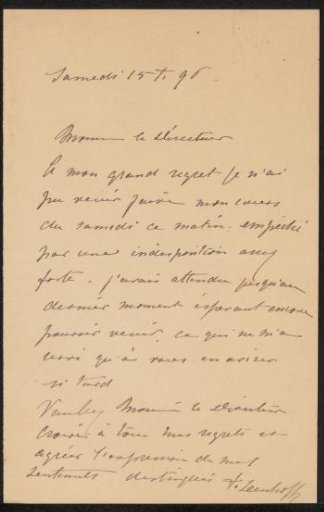 Samedi 15 f. 96.
Monsieur le Directeur
A mon grand regret je n'ai
pu venir faire mon cours
du samedi ce matin, empêché
par une indisposition assez
forte. j'avais attendu jusqu'au
dernier moment espérant encore
pouvoir venir, ce qui ne m'a
qu'à vous en aviser
si tard
Veuillez Monsieur le Directeur
croire à tous mes regrets et
agréer l'expression de mes
sentiments distingués